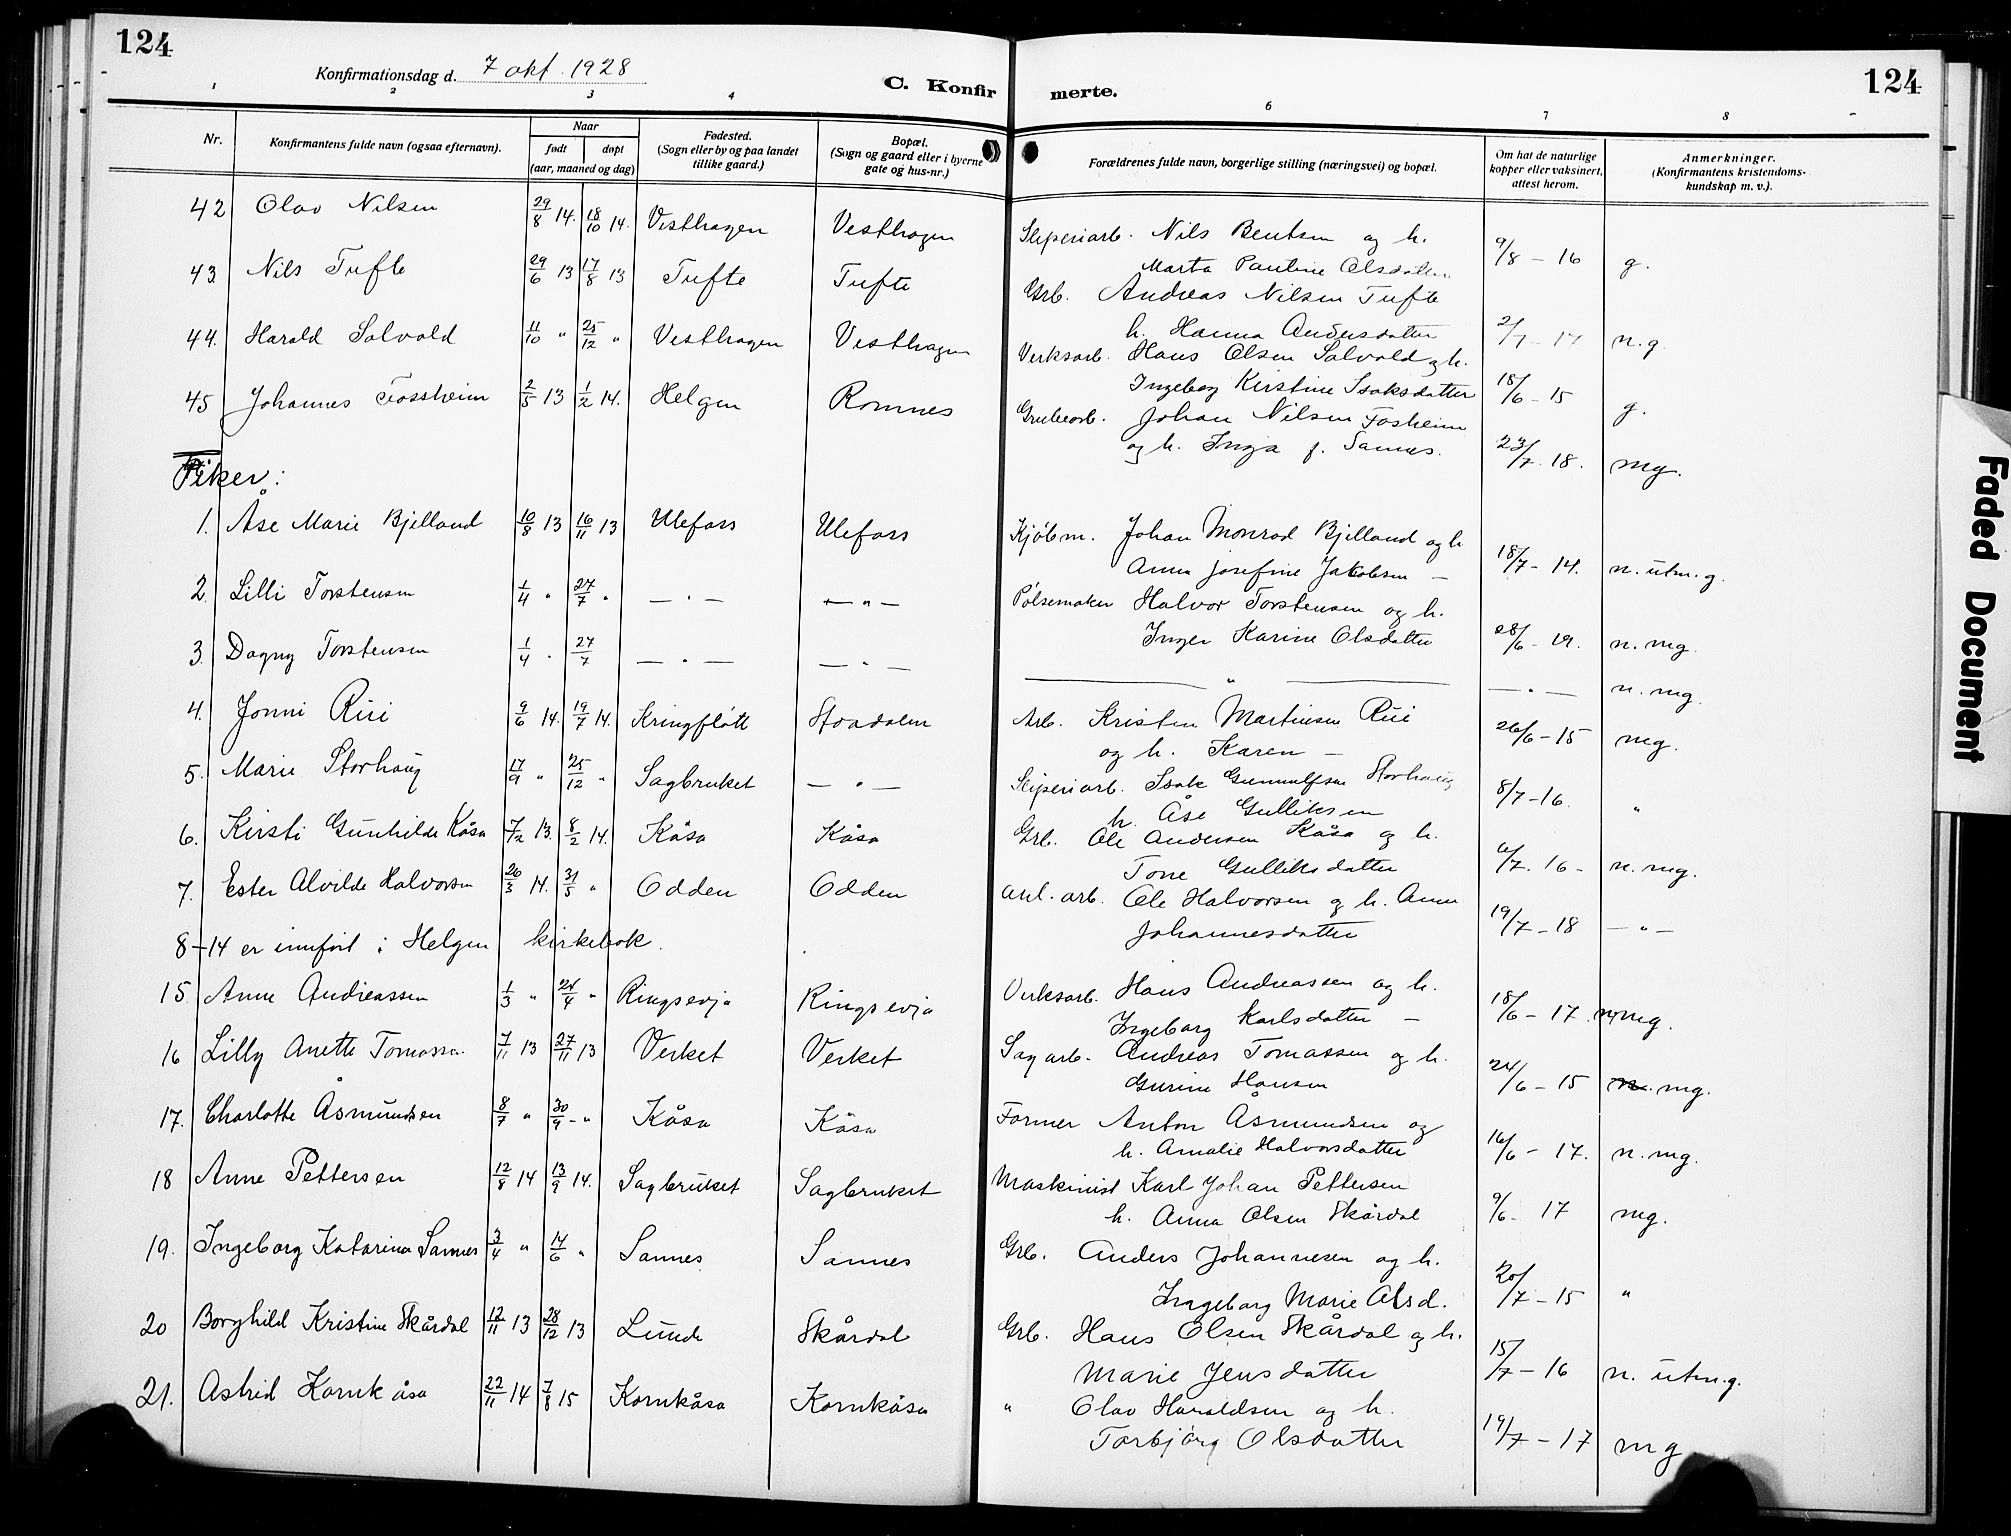 124
Konfirmationsdag d. 7 okt. 1928
C. Konfirmerte.
124
1 2 3 4 6 7 8
Nr.
Konfirmantens fulde navn (ogsaa efternavn).
Naar
født døpt
(aar, maaned og dag)
Fødested.
(Sogn eller by og paa landet
tillike gaard.)
Bopæl.
(Sogn og gaard eller i byerne
gate og hus-nr.)
Forældrenes fulde navn, borgerlige stilling (næringsvei) og bopæl.
Om hat de naturlige
kopper eller vaksinert,
attest herom.
Anmerkninger.
(Konfirmantens kristendoms-
kundskap m. v.).
42 Olav Nilsen 29/8 14. 18/10 14. Vesthagen Vesthagen Sliperiarb. Nils Bentsen og h.
Marta Pauline Olsdatter 9/8 - 16 g.
43. Nils Tufte 29/6 13 17/8 13 Tufte Tufte Grb. Andreas Nilsen Tufte
h. Hanna Andersdatter 2/7 - 17 n.g.
44. Harald Solvold 11/10 " 25/12 " Vesthagen Vesthagen Verksarb. Hans Olsen Solvold og h.
Ingeborg Kirstine Isaksdatter 18/6 - 15 g.
45 Johannes Fossheim 2/5 13 1/2 14. Helgen Romnes Grubearb. Johan Nilsen Fosheim
og h. Inga f. Sannes. 23/7. 18. mg.
Piker:
1. Åse Marie Bjelland 10/8 13 16/11 13 Ulefoss Ulefoss Kjøbm. Johan Monrad Bjelland og h
Anna Josefine Jakobsen - 18/7 - 14. n. utm. g.
2. Lilli Torstensen 1/4 " 27/7 " — " — — " — Pølsemaker Halvor Torstensen og h.
Inger Karine Olsdatter 28/6 - 19. n. mg.
3. Dagny Torstensen 1/4 " 27/7 — " — — " — — " — — " — n. mg.
4. Jonni Rui 9/6 14. 19/7 14. Kringflått Hoadalen Arb. Kristen Martinsen Rui
og h. Karen - 26/6 - 15 mg.
5. Marie Storhaug 17/9 " 25/12 " Sagbruket — " — Sliperiarb. Isak Gunnulfsen Storhaug
h. Åse Gulliksen 8/7 - 16. "
6. Kirsti Gunhilde Kåsa 7/12 13. 8/2 14. Kåsa Kåsa Grb. Ole Andersen Kåsa og h.
Tone Gulliksdatter 6/7. 16 - n. mg.
7. Ester Alvilde Halvorsen 26/3 14. 31/5 " Odden Odden anl. arb. Ole Halvorsen og h. Anne
Johannesdatter 19/7 - 18 — " —
8-14 er innført i Helgen kirkebok.
15 Anne Andreassen 1/3 " 24/4 " Ringsevja Ringsevja Verksarb. Hans Andreassen og h.
Ingeborg Karlsdatter - 18/6 - 17. mg.
16 Lilly Anette Tomassen 7/11 13 27/11 13 Verket Verket Sagarb. Andreas Tomassen og h.
Gurine Hansen 24/6 - 15 mg.
17. Charlotte Åsmundsen 8/7 " 30/9 - " Kåsa Kåsa Former Anton Åsmundsen og
h. Amalie Halvorsdatter 16/6 - 17. n. mg.
18 Anne Pettersen 12/8 14 13/9 14. Sagbruket Sagbruket Maskinist Karl Johan Pettersen
h. Anna Olsen Skårdal 9/6 - 17 mg.
19. Ingeborg Katarina Sannes 3/4 " 14/6 " Sannes Sannes Grb. Anders Johannesen og h.
Ingeborg Marie Olsd. 20/7 - 15 "
20 Borghild Kristine Skårdal 12/11 13 28/12 13 Lunde Skårdal Grb. Hans Olsen Skårdal og h.
Marie Jensdatter 15/7 - 16 n. utm. g.
21. Astrid Kornkåsa 22/11 14 7/8 15 Kornkåsa Kornkåsa " Olav Haraldsen og h.
Torbjørg Olsdatter 19/7 - 17 mg
Faded Document